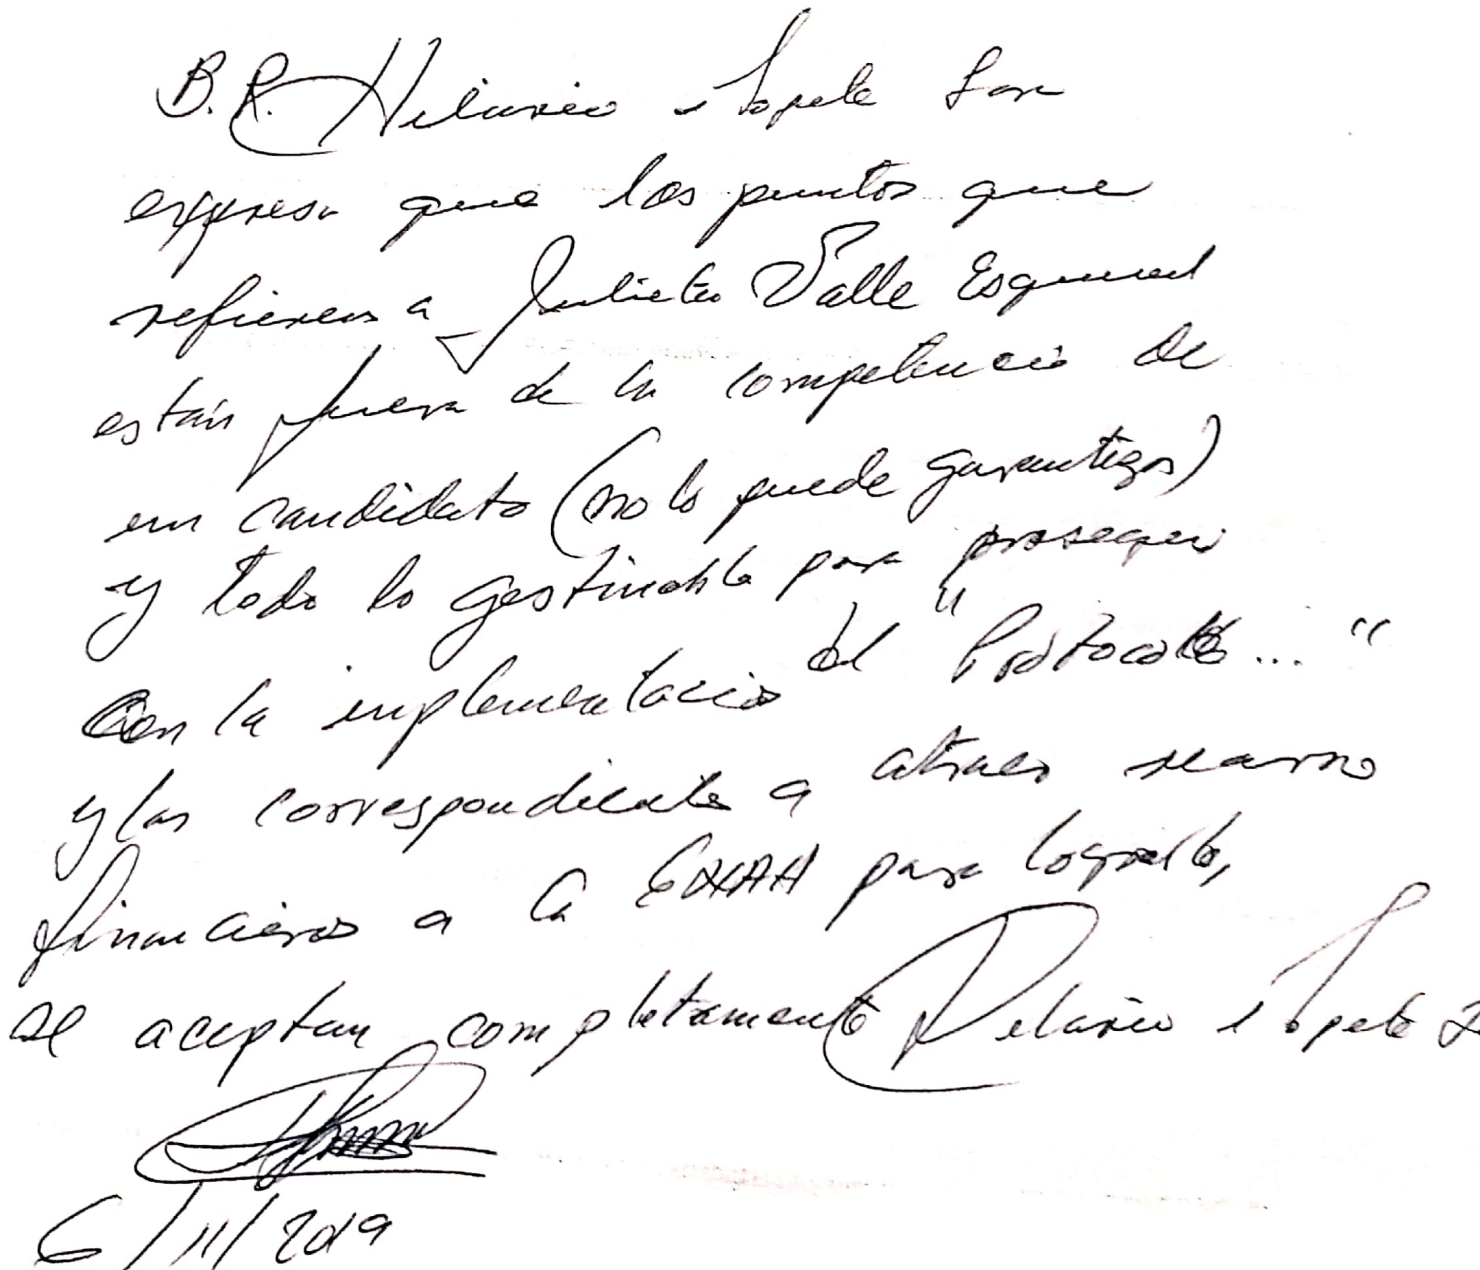 B.P. Hilario Topete Lara
expresa que los puntos que
refieren a Julieta Valle Esquivel
están fuera de la competencia de
un candidato (no lo puede garantizar)
y todo lo gestionable para proseguir
con la implementación del "Protocolo..."
y las correspondiente a atraer recurso
financieros a la ENAH para lograrlo,
se aceptan completamente Hilario Topete
6/11/2019